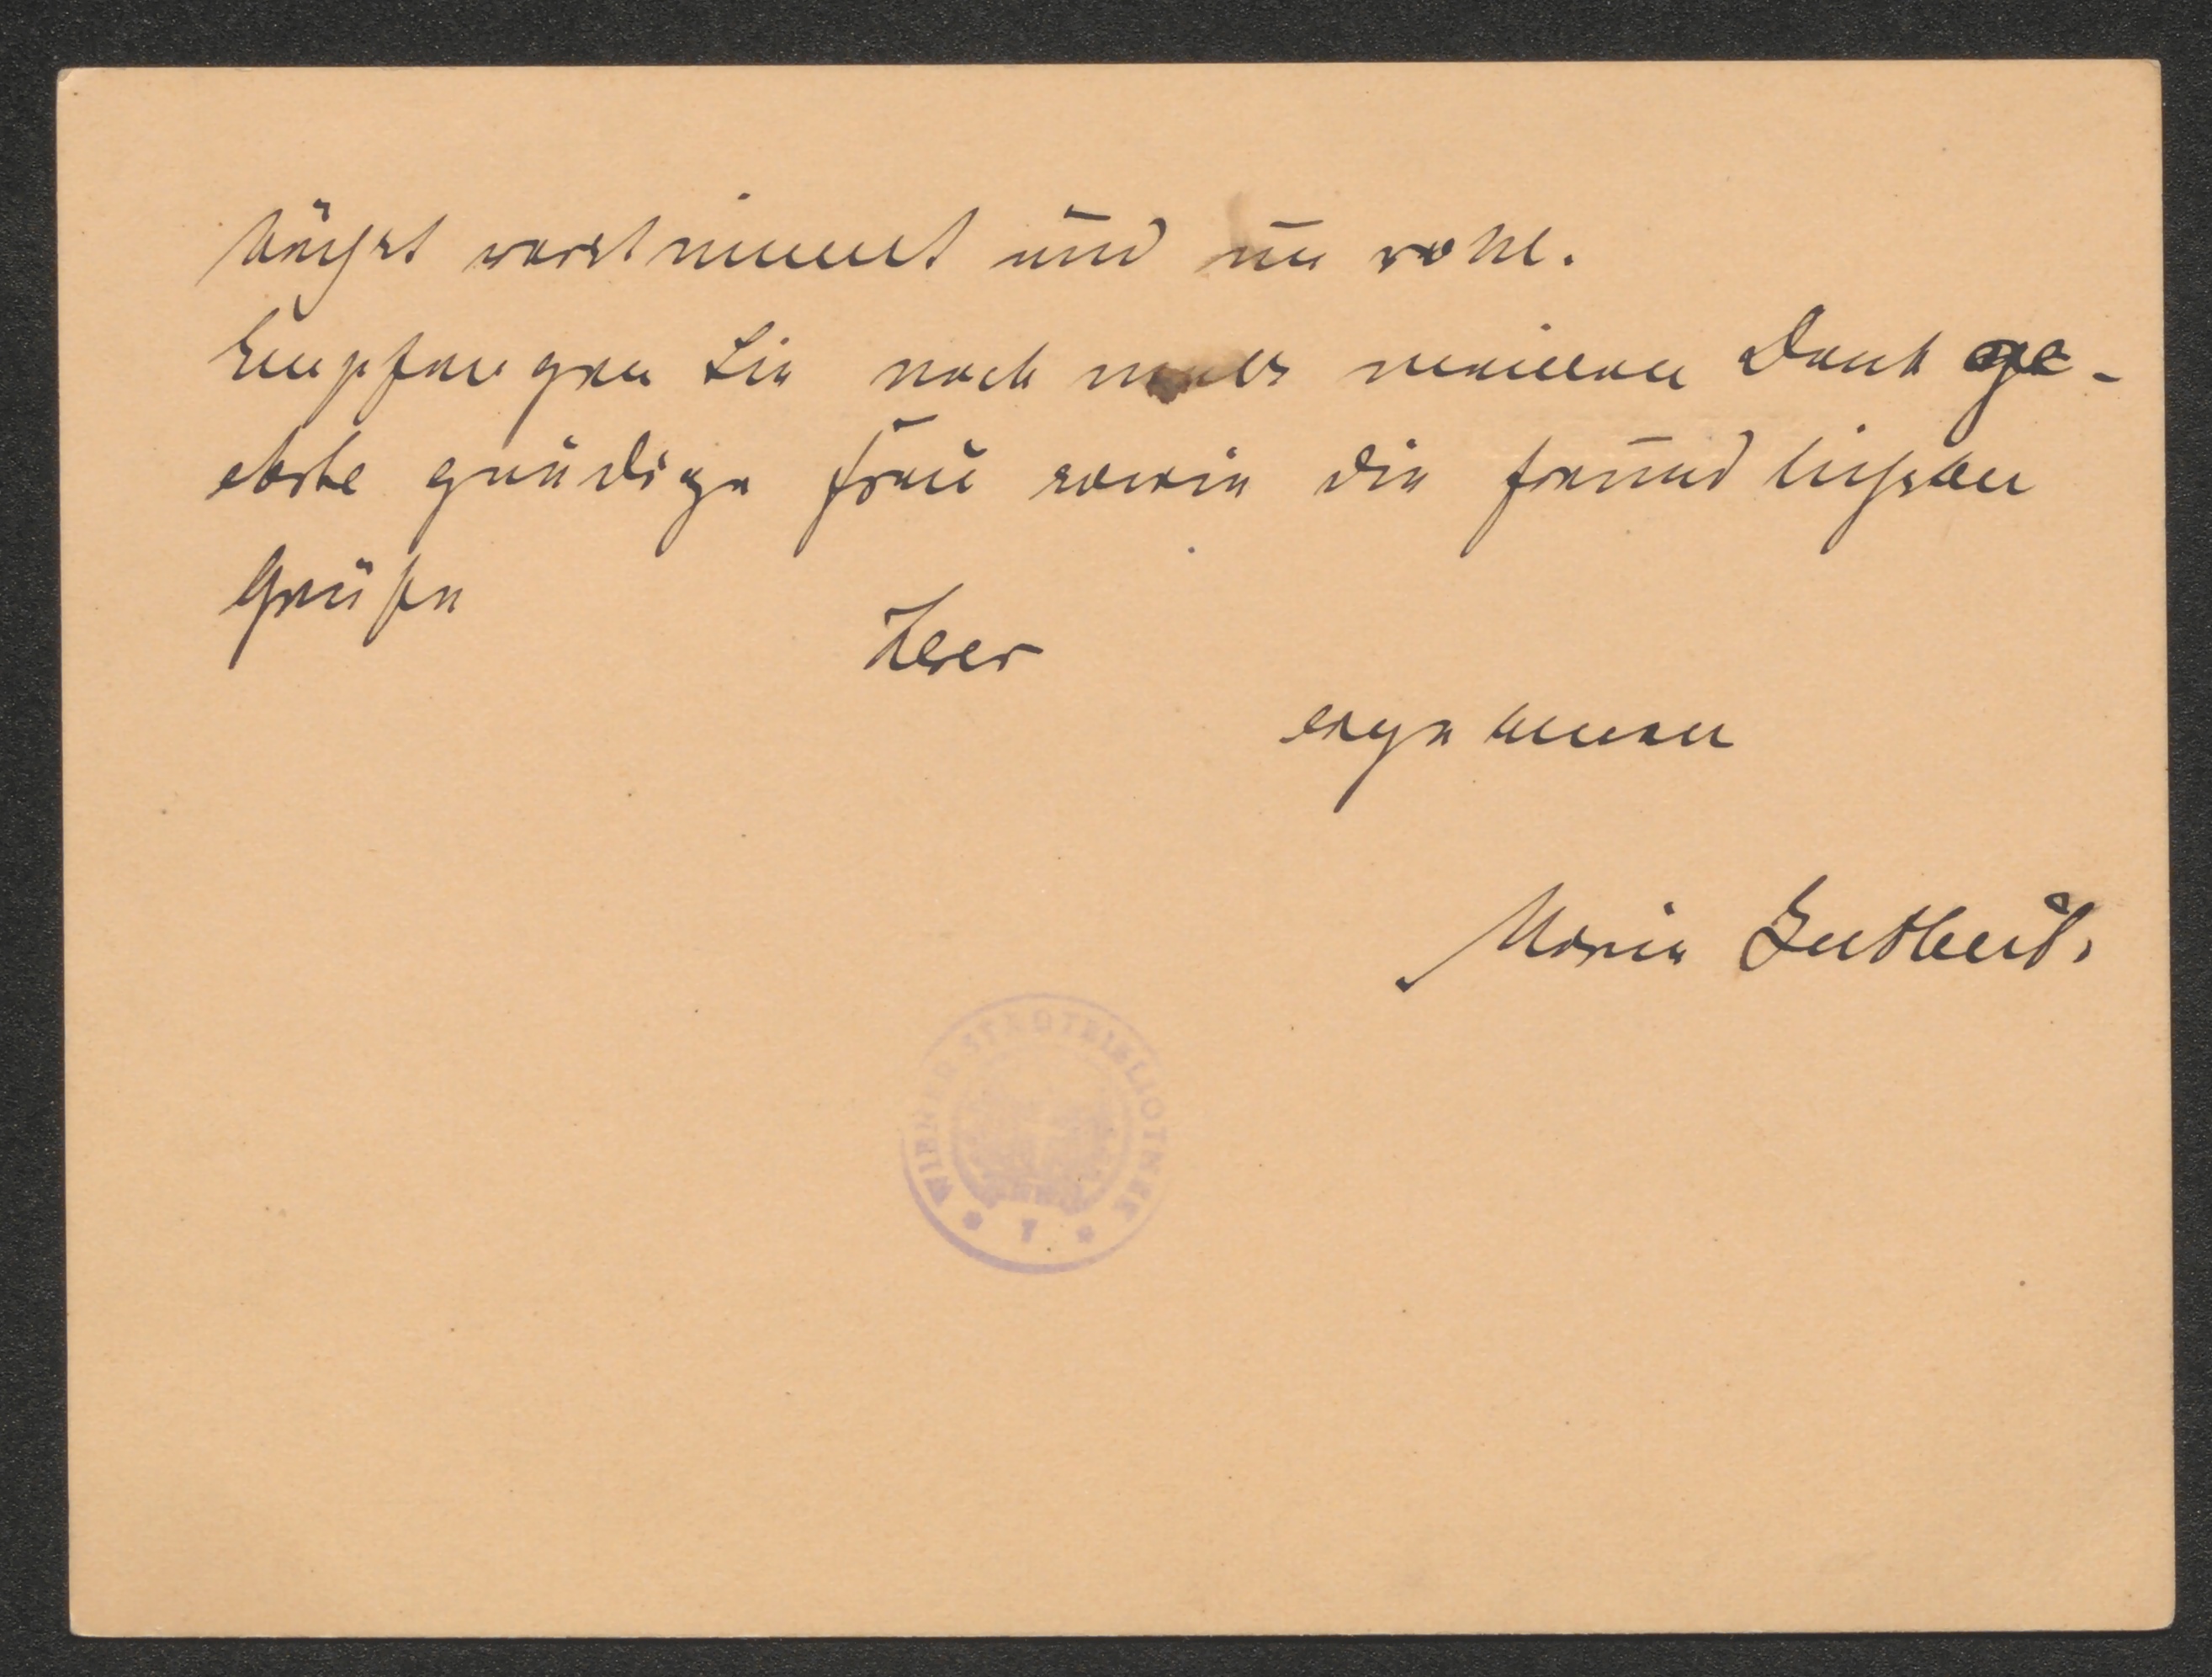 höchst verstimmt und unwohl.
Empfangen Sie nochmals meinen Dank ge-
ehrte gnädige Frau sowie die freundlichsten
Grüße
Ihrer
ergebenen
Maria
WIENER STADTBIBLIOTHEK